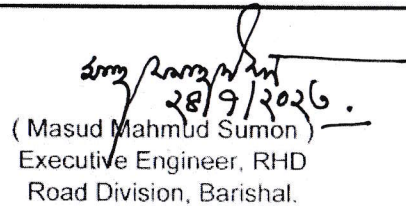 ২৪/৭/২০২৩.
( Masud Mahmud Sumon )
Executive Engineer, RHD
Road Division, Barishal.